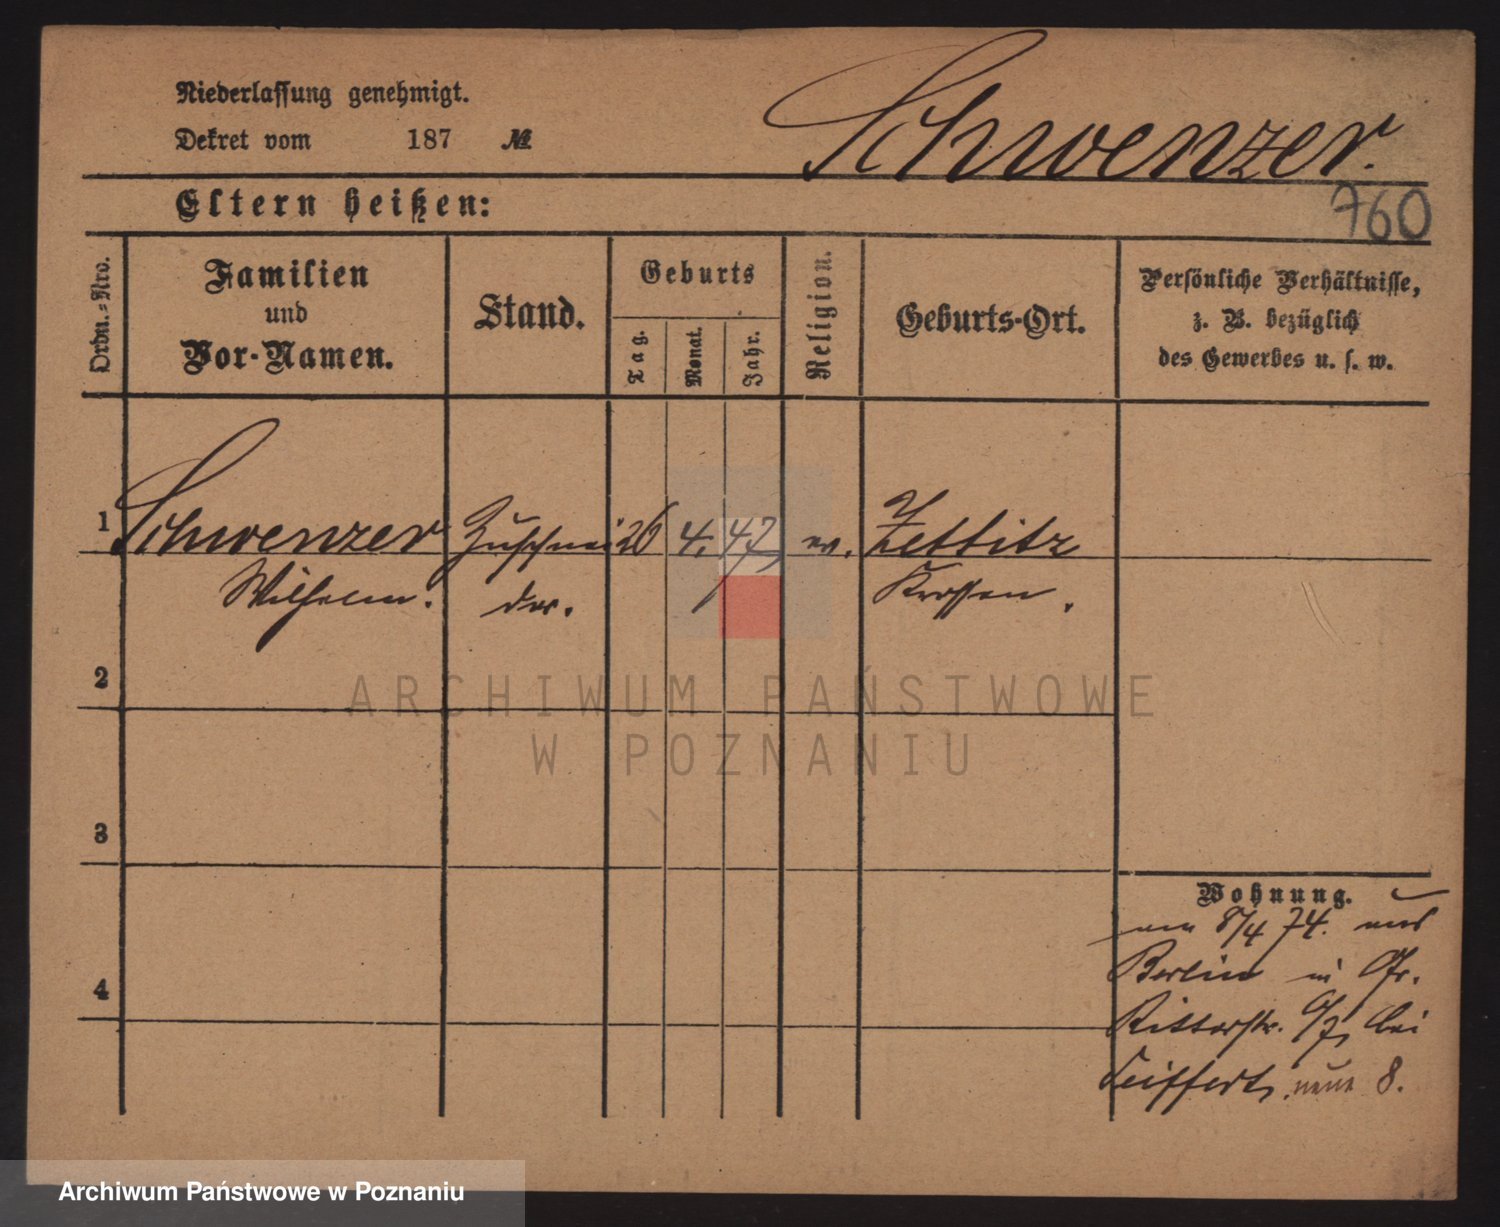 Niederlassung genehmigt.
Dekret vom 187 №
Schwenzer.
760
Eltern heißen:
Ordn.-Nro.
Familien
und
Vor-Namen.
Stand.
Geburts
Tag.
Monat.
Jahr.
Religion.
Geburts-Ort.
Persönliche Verhältnisse,
z. B. bezüglich
des Gewerbes u. s. w.
1 Schwenzer Zuschnei 26 4. 47 ev. Zettitz
Wilhelm. der. Krossen.
2
ARCHIWUM PAŃSTWOWE
W POZNANIU
3
Wohnung.
am 8/4 74. aus
Berlin in Gr.
4
Ritterstr. 6/7, bei
Seiffert, neue 8.
Archiwum Państwowe w Poznaniu